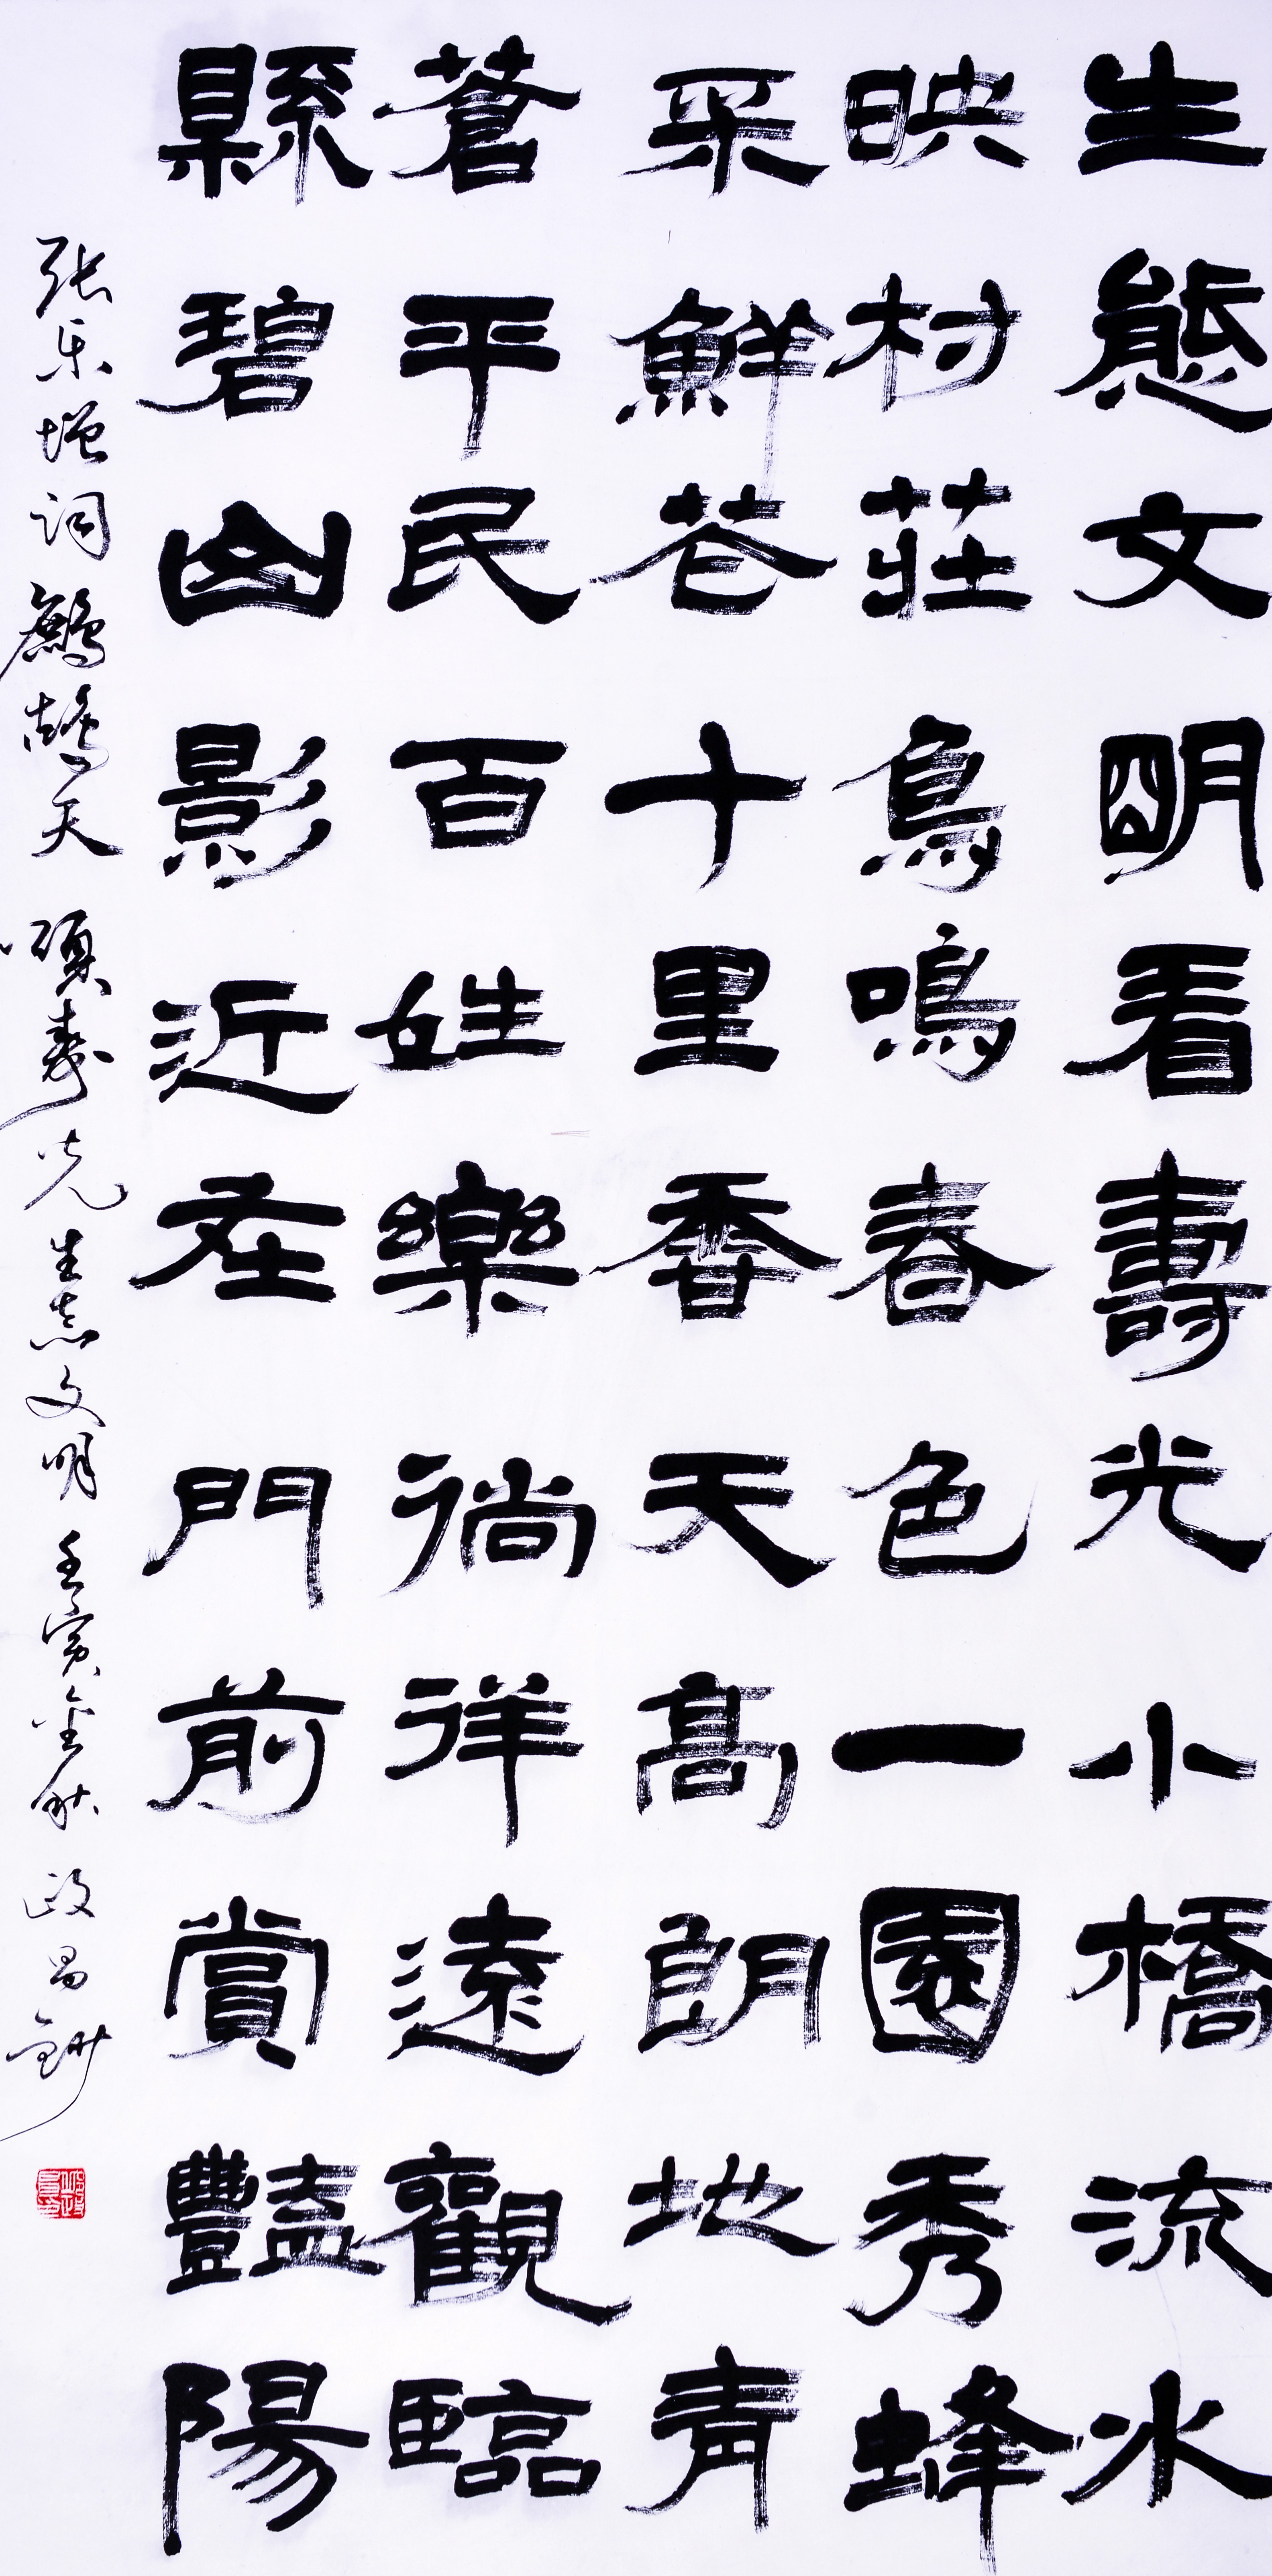 生態文明看壽光小橋流水
映村莊鳥鳴春色一園秀蜂
采鮮花十里香天高朗地青
蒼平民百姓樂徜徉遠觀臨
縣碧山影近在門前賞豔陽
张乐增词鹧鸪天 颂寿光生态文明 壬寅金秋 政昌鈔